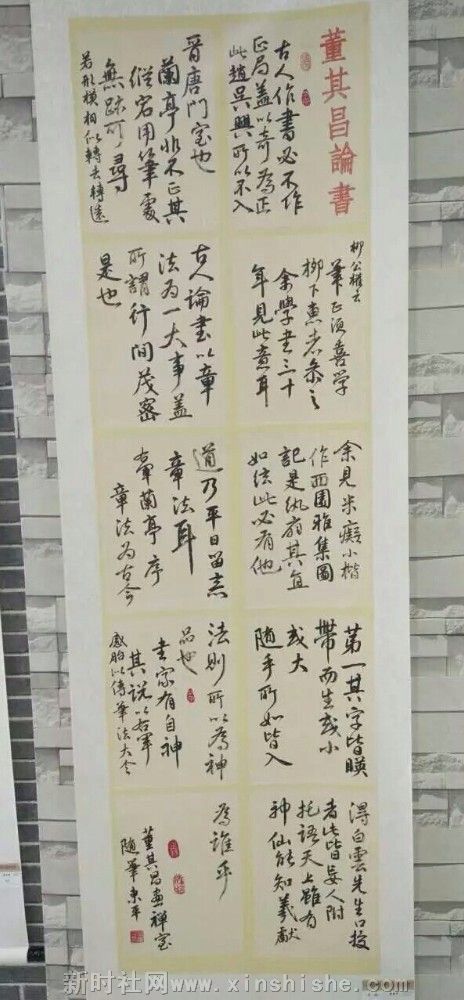 董其昌論書
古人作書必不作
正局盖以奇為正
此趙吳興所以不入
晉唐門室也
蘭亭非不正其
縱宕用筆處
無跡可尋
若形模相似轉去轉遠
柳公權云
筆正須善學
柳下惠者參之
余學書三十
年見此意耳
古人論書以章
法為一大事盖
所謂行間茂密
是也
余見米癡小楷
作西園雅集圖
記是紈扇其直
如弦此必有他
道乃平日留意
章法耳
右軍蘭亭序
章法為古今
第一其字皆暎
帶而生或小
或大
隨手所如皆入
法則所以為神
品也
書家有自神
其說以右軍
感胎以傳筆法大令
得白雲先生口授
者此皆妄人附
托語天上雖有
神仙能知羲獻
為誰乎
董其昌畫禪室
隨筆東平
新时社网www.xinshishe.com